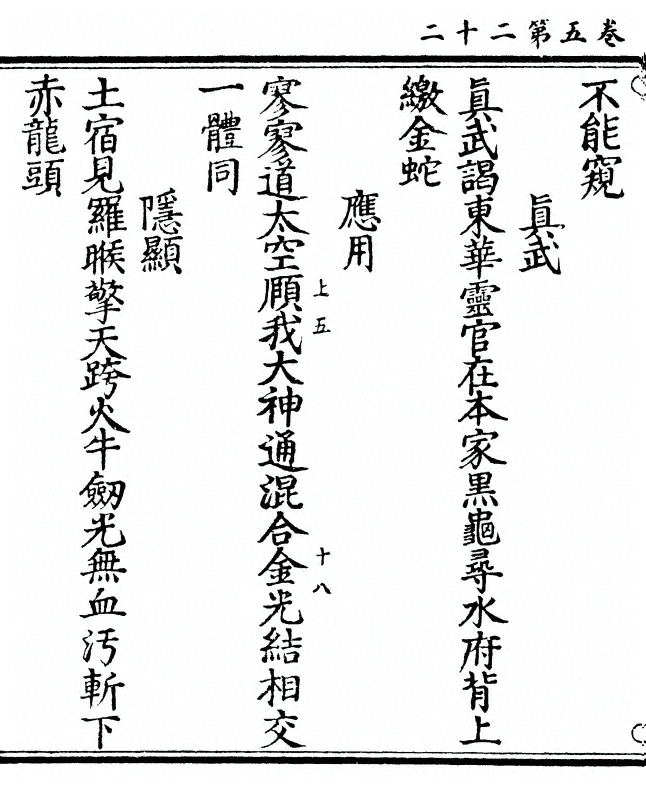 卷五第二十二
不能窺
真武
真武謁東華靈官在本家黑龜尋水府背上
繳金蛇
應用
寥寥道太空願我大神通混合金光結相交
上五
十八
一體同
隱顯
土宿見羅睺擎天跨火牛劒光無血汚斬下
赤龍頭